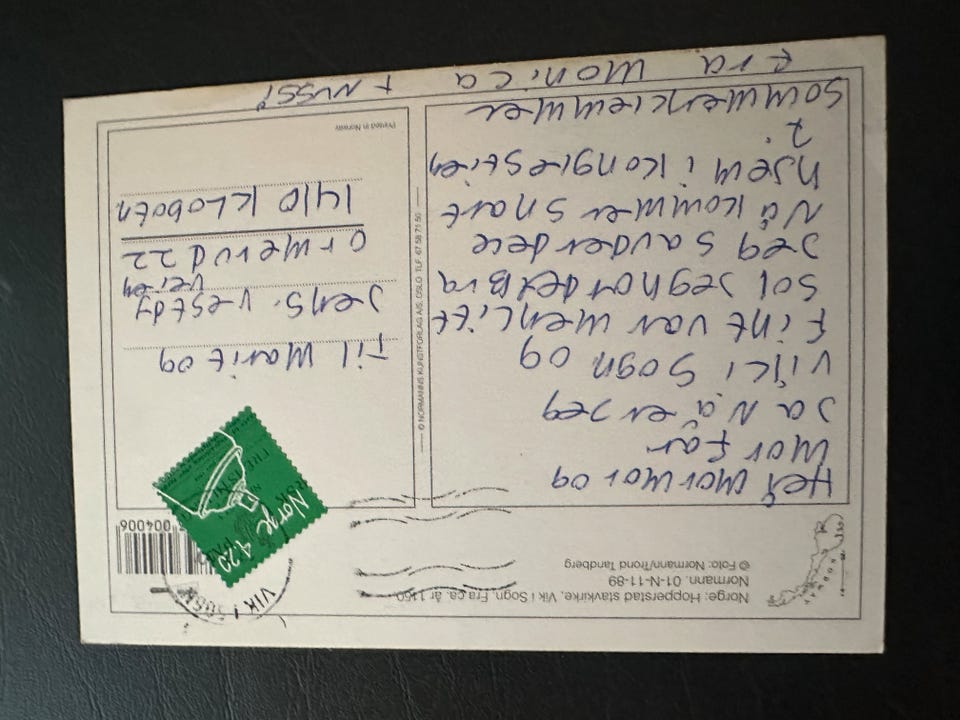 Norge: Hopperstad stavkirke, Vik i Sogn. Fra ca. år 1150
Normann. 01-N-11-89
© Foto: Normann/Trond Tandberg
NORWAY
VIK I SOGN
Norge 4,20
004006
Hei mormor og
morfar
Ja Nå er jeg
Vik i Sogn og
Fint var men litt
Sol Jeg har det Bra
Jeg savner dere
Nå kommer snart
hjem i Konglestien
?
Sommerklemmer
Fra Monica
+ NUSS!
© NORMANNS KUNSTFORLAG A/S, OSLO TLF. 67 58 71 50
Til Marit og
Jens. Vestby
veien
Ormerud 22
1410 Kloboten
Printed in Norway